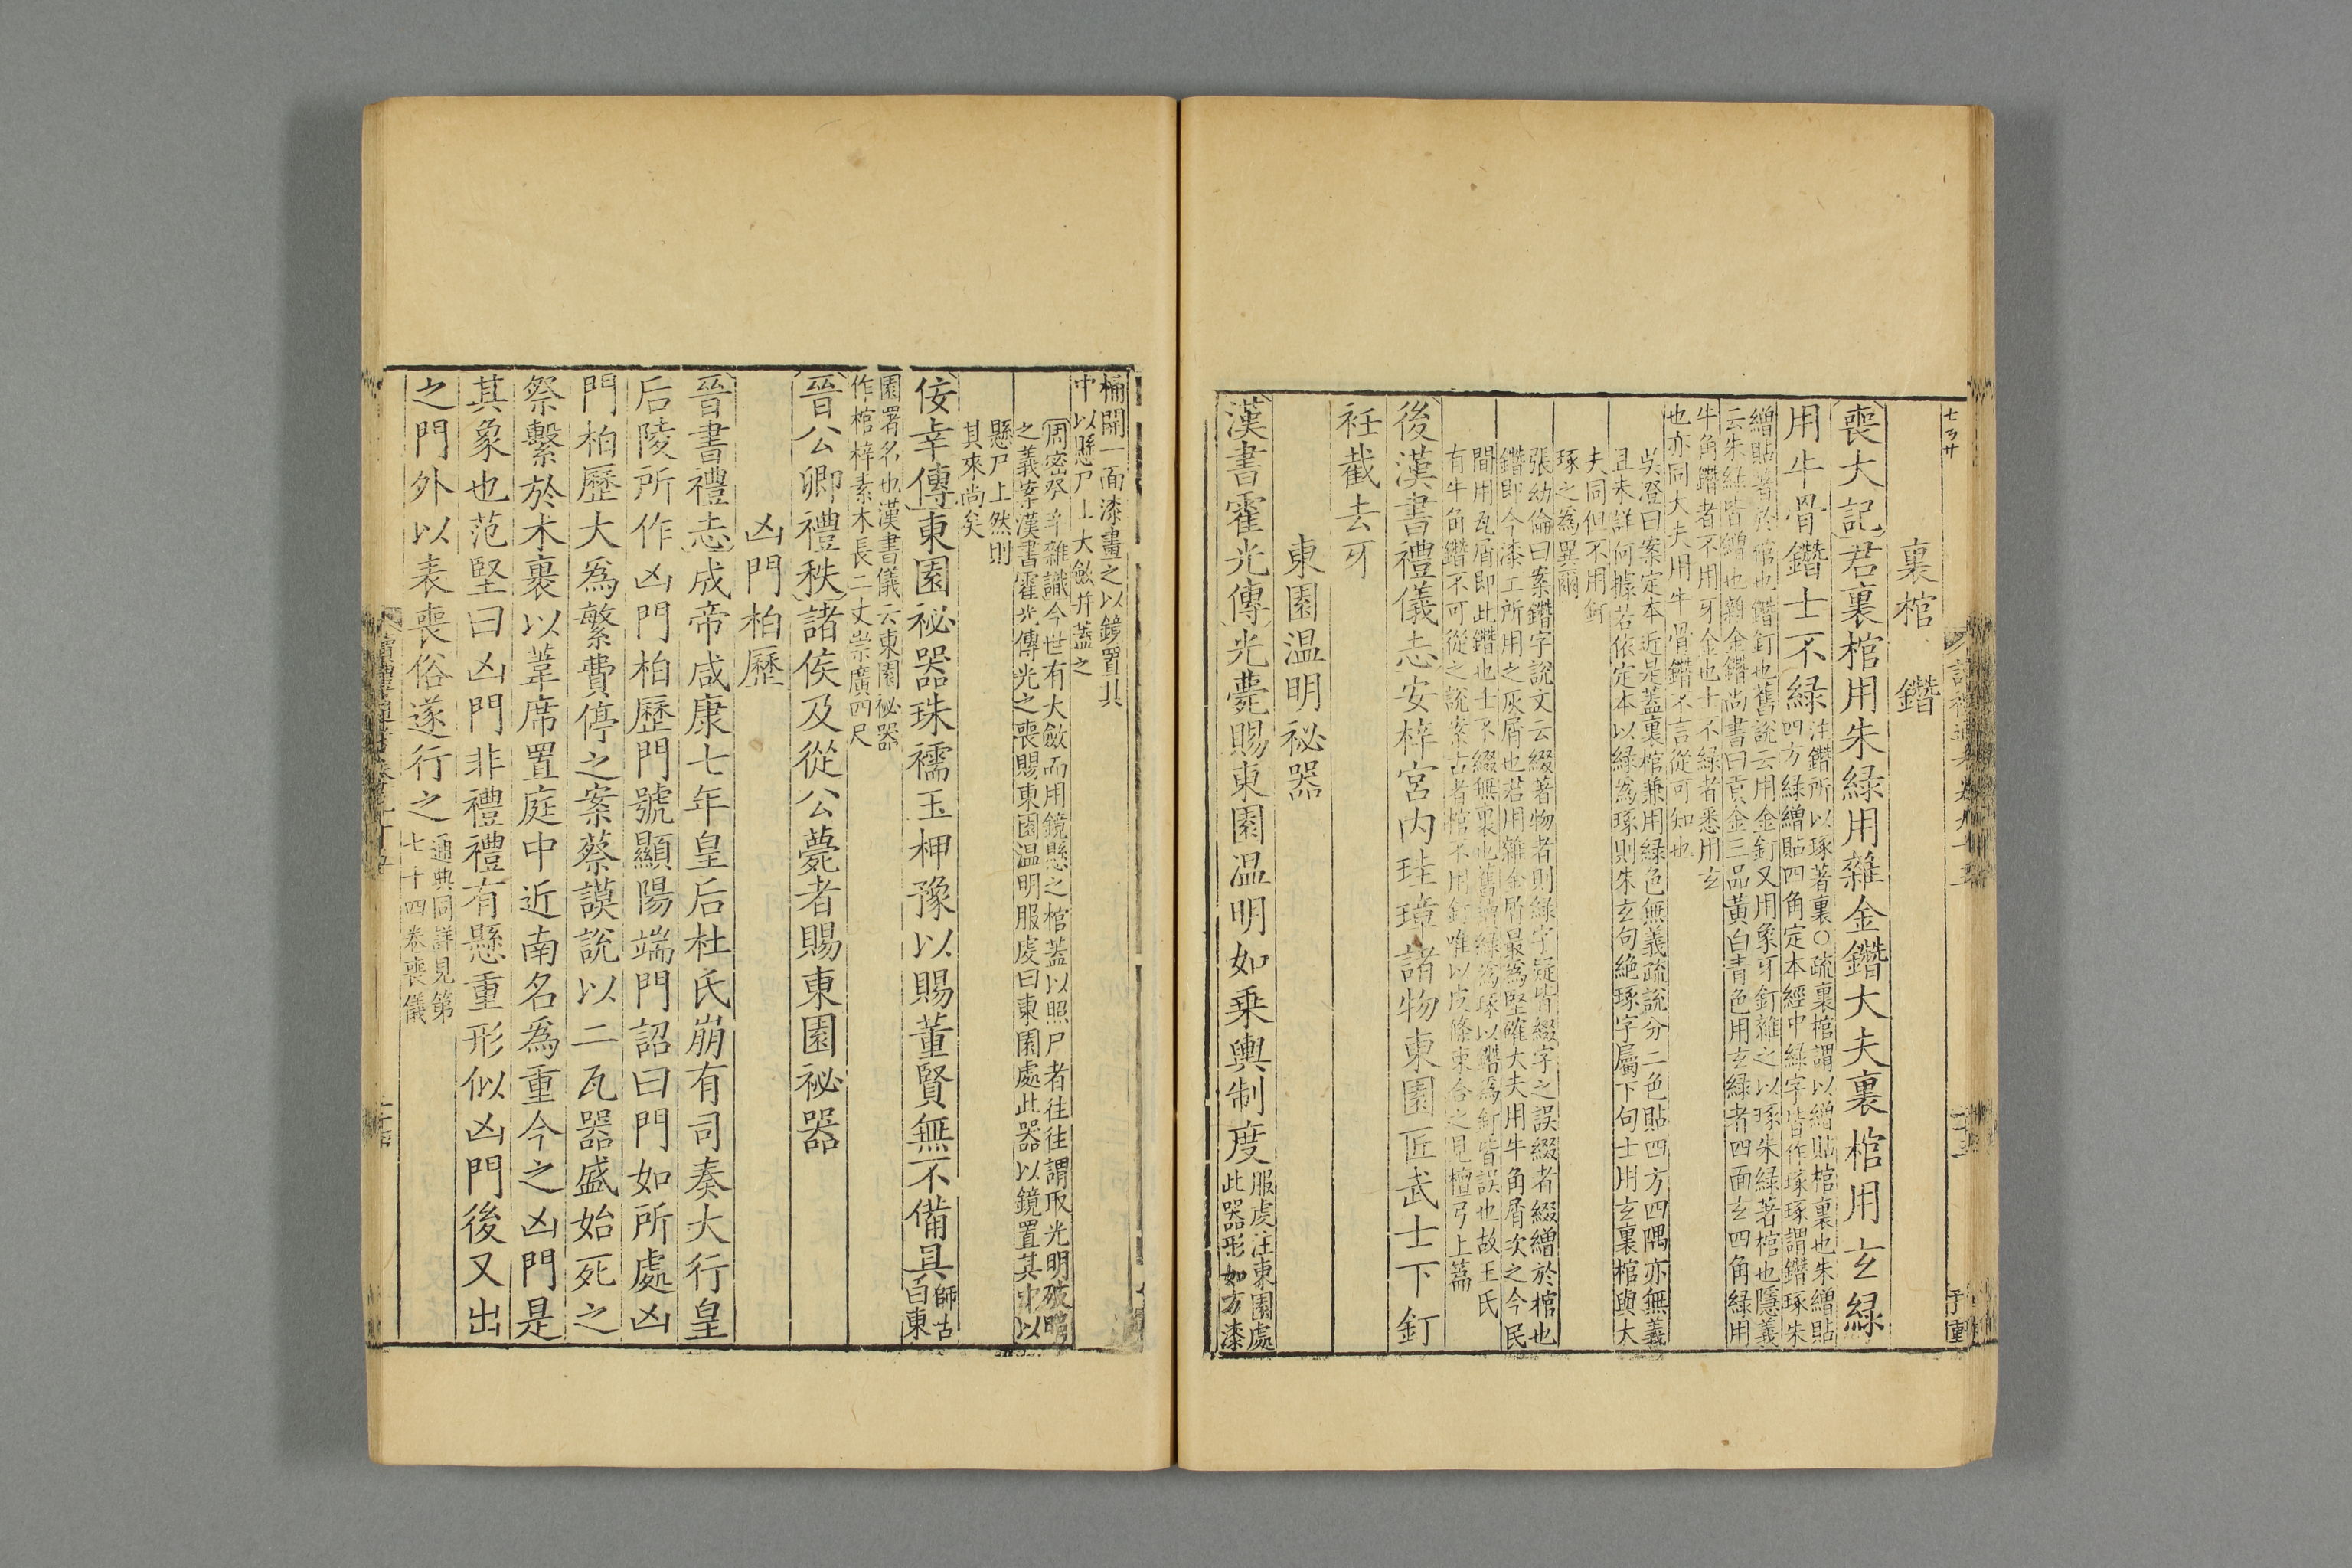 七百廿
裏棺 鐕
喪大記君裏棺用朱綠用雜金鐕大夫裏棺用玄綠
用牛骨鐕士不綠注鐕所以琢著裏○疏裏棺謂以繒貼棺裏也朱繒貼
四方綠繒貼四角定本經中綠字皆作琢琢謂鐕琢朱
繒貼著於棺也鐕釘也舊說云用金釘又用象牙釘雜之以琢朱綠著棺也隱義
云朱綠皆繒也雜金鐕尚書曰貢金三品黃白青色用玄綠者四面玄四角綠用
牛角鐕者不用牙金也士不綠者悉用玄
也亦同大夫用牛骨鐕不言從可知也
吳澄曰案定本近是蓋裏棺兼用綠色無義疏說分二色貼四方四隅亦無義
且未詳何據若依定本以綠為琢則朱玄句絕琢字屬下句士用玄裏棺與大
夫同但不用釘
琢之為異爾
張幼倫曰案鐕字說文云綴著物者則綠字疑皆綴字之誤綴者綴繒於棺也
鐕即今漆工所用之灰屑也君用雜金屑最為堅確大夫用牛角屑次之今民
間用瓦屑即此鐕也士不綴無裏也舊讀綠為琢以鐕為釘皆誤也故王氏
有牛角鐕不可從之說案古者棺不用釘唯以皮條束合之見檀弓上篇
後漢書禮儀志安梓宮內珪璋諸物東園匠武士下釘
衽截去牙
東園温明祕器
漢書霍光傳光薨賜東園温明如乗輿制度服虔注東園處
此器形如方漆
桶開一面漆畫之以鏡置其
中以懸尸上大斂并蓋之
周密癸辛雜識今世有大斂而用鏡懸之棺蓋以照尸者往往謂取光明破暗
之義案漢書霍光傳光之喪賜東園温明服虔曰東園處此器以鏡置其中以
懸尸上然則
其來尚矣
佞幸傳東園祕器珠襦玉柙豫以賜董賢無不備具師古
曰東
園署名也漢書儀云東園祕器
作棺梓素木長二丈崇廣四尺
晉公卿禮秩諸侯及從公薨者賜東園祕器
凶門柏歷
晉書禮志成帝咸康七年皇后杜氏崩有司奏大行皇
后陵所作凶門柏歷門號顯陽端門詔曰門如所處凶
門柏歷大為繁費停之案蔡謨說以二瓦器盛始死之
祭繫於木裹以葦席置庭中近南名為重今之凶門是
其象也范堅曰凶門非禮禮有懸重形似凶門後又出
之門外以表喪俗遂行之通典同詳見第
七十四卷喪儀